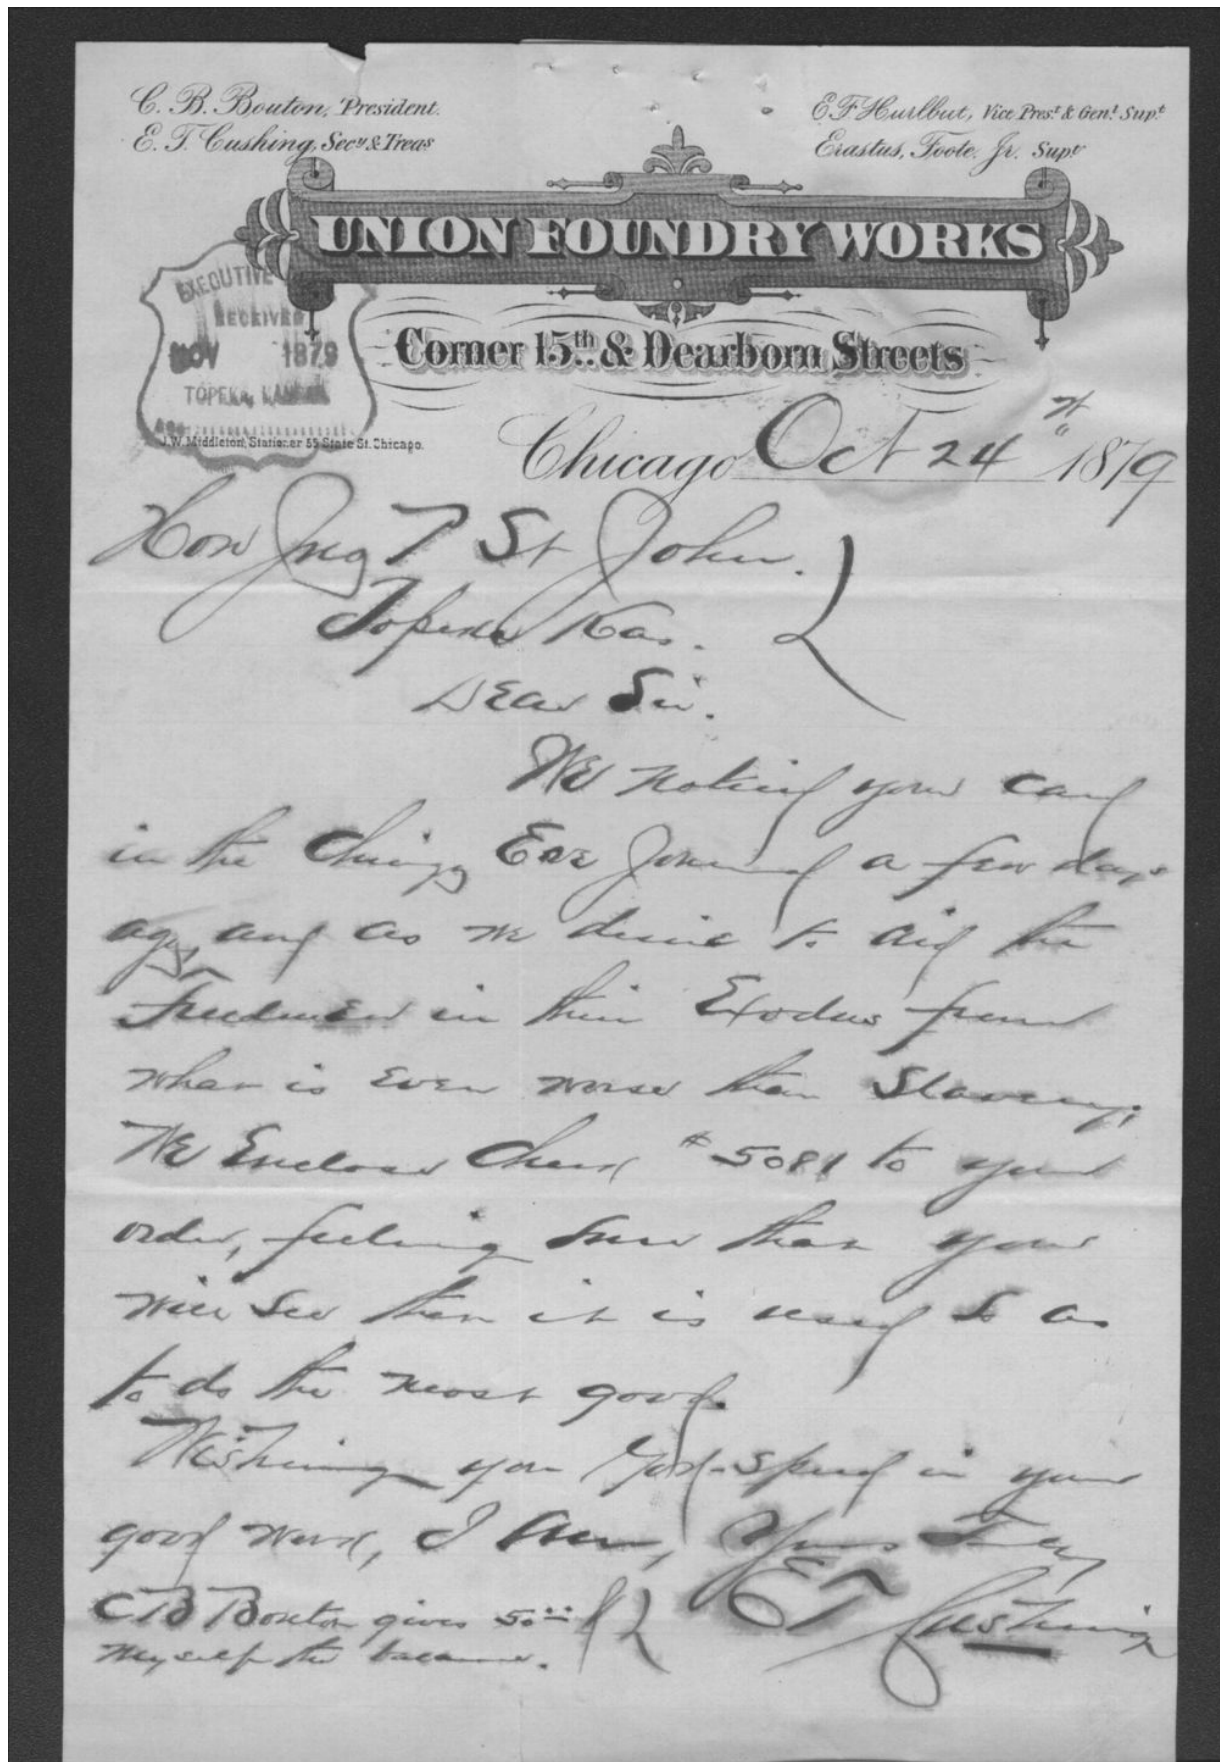 C. B. Bouton, President.
E. T. Cushing, Secy & Treas
E. F. Hurlbut, Vice Prest. & Genl. Supt.
Erastus, Foote. Jr. Supt.
UNION FOUNDRY WORKS
EXECUTIVE
RECEIVED
NOV 1879
TOPEKA, KANSAS
Corner 15th. & Dearborn Streets
J.W. Middleton, Stationer 55 State St. Chicago.
Chicago Oct 24th 1879
Hon Jno P St John.
Topeka Kas.
Dear Sir.
We noticed your card
in the Chicago Eve Journal a few days
ago, and as we desire to aid the
Freedmen in their Exodus from
what is even worse than Slavery;
We Enclose Check # 5081 to your
order, feeling sure that you
will see that it is used so as
to do the most good.
Wishing you God-speed in your
good work, I am, Yours Truly
E T Cushing
C B Bouton gives 50..
myself the balance.